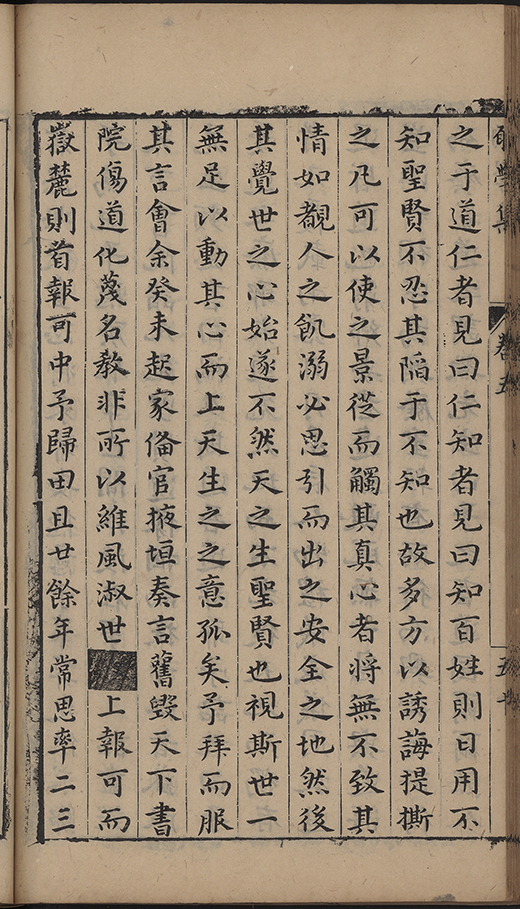 學集 卷五 五十
之于道仁者見曰仁知者見曰知百姓則日用不
知聖賢不忍其陷于不知也故多方以誘誨提撕
之凡可以使之景從而觸其真心者將無不致其
情如覩人之飢溺必思引而出之安全之地然後
其覺世之心始遂不然天之生聖賢也視斯世一
無足以動其心而上天生之之意孤矣予拜而服
其言會余癸未起家偹官掖垣奏言舊毀天下書
院傷道化蔑名教非所以維風淑世上報可而
嶽麓則首報可中予歸田且廿餘年常思率二三